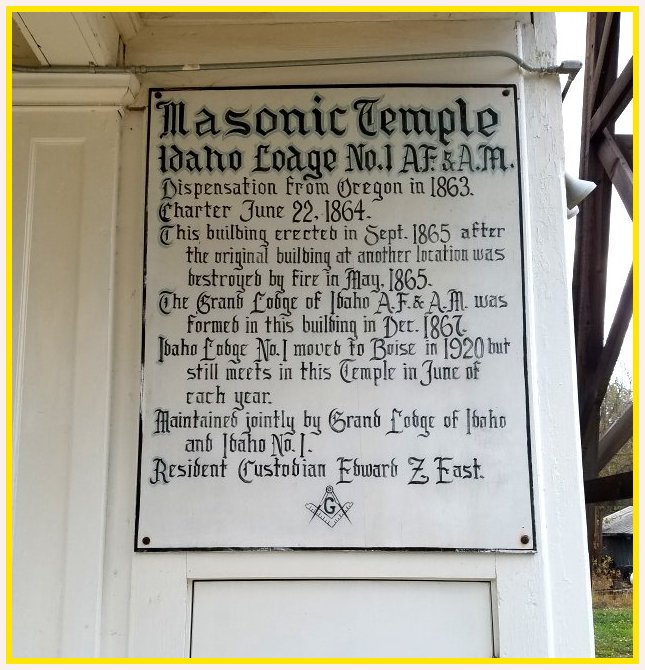 Masonic Temple
Idaho Lodge No.1 A.F. & A.M.
Dispensation from Oregon in 1863.
Charter June 22, 1864.
This building erected in Sept. 1865 after
the original building at another location was
destroyed by fire in May, 1865.
The Grand Lodge of Idaho A.F. & A.M. was
formed in this building in Dec. 1867.
Idaho Lodge No.1 moved to Boise in 1920 but
still meets in this Temple in June of
each year.
Maintained jointly by Grand Lodge of Idaho
and Idaho No.1.
Resident Custodian Edward Z. East.
G